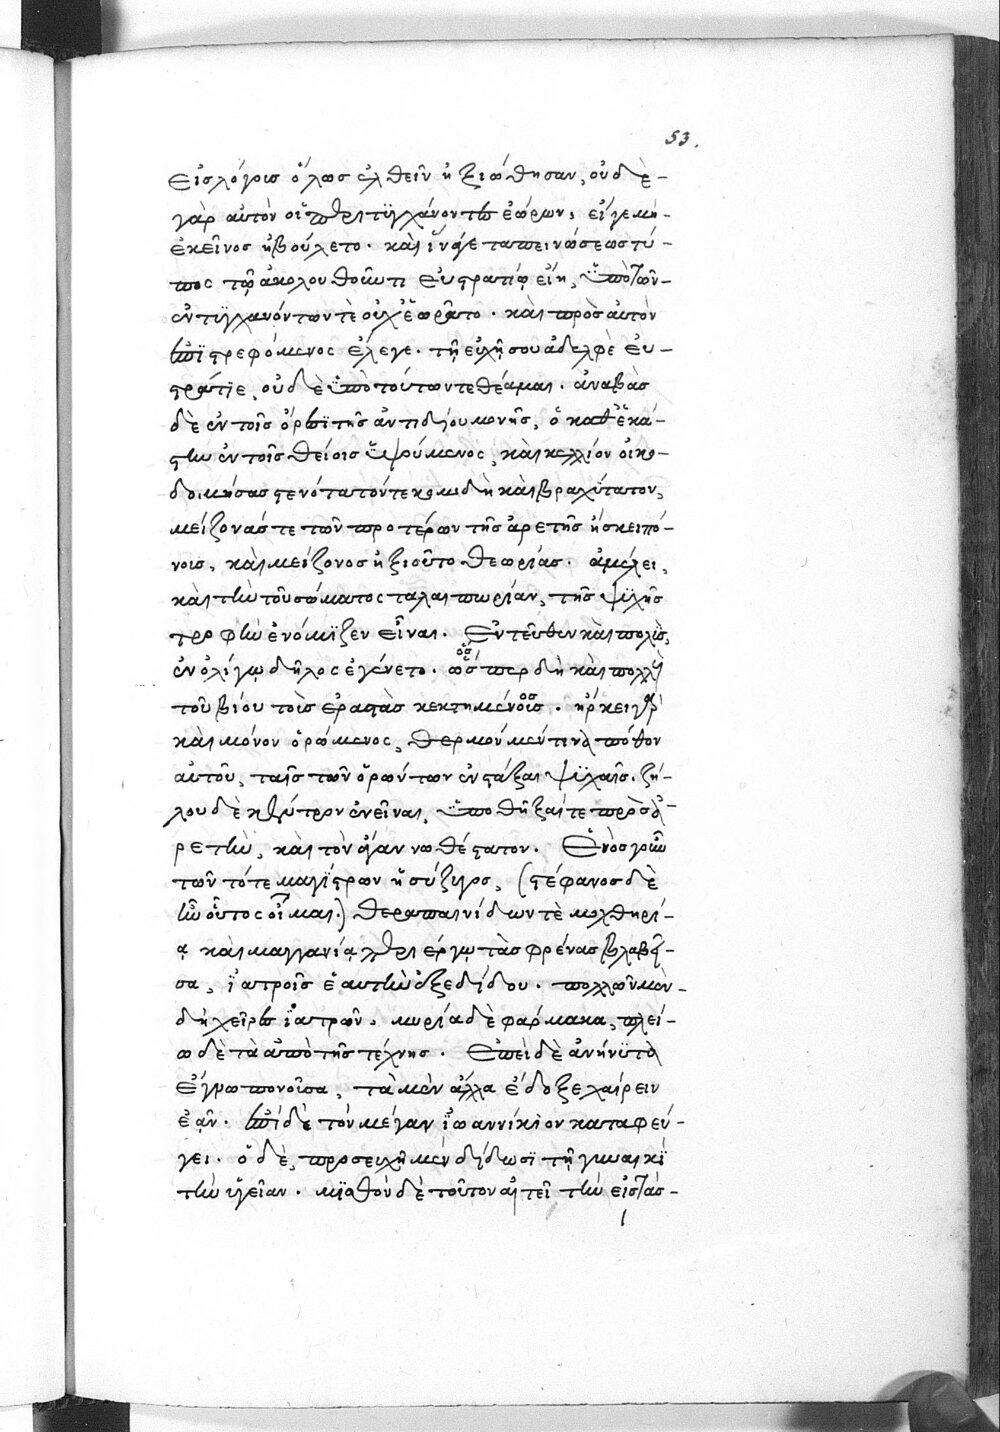 53.
εἰσ λόγοισ ὅλωσ ἐλθεῖν ἠξιώθησαν, οὐδὲ-
γὰρ αὐτὸν οἱ τυγχάνοντεσ ἑώρων, εἴγε μὴ-
ἐκεῖνος ἠβούλετο. καὶ ἵνα γε ταπεινώσεωσ τύ-
πος τῷ ἀκολουθοῦντι εὐστρατίῳ εἴη, ὑπὸ τῶν-
ἐντυγχανόντων τὲ οὐχ ἑωρᾶτο. καὶ πρὸσ αὐτὸν
ἐπιστρεφόμενος ἔλεγε. τῇ εὐχῇ σου ἀδελφὲ εὐ-
στράτϊε, οὐδὲ ὑπὸ τούτων τεθέαμαι. ἀναβὰσ
δὲ ἐν τοῖσ ὄρεσι τῆσ ἀντιδίου μονῆσ, ὁ καθ' ἑκά-
στην ἐν τοῖσ θείοισ ὑψούμενος, καὶ κελλίον οἰκο-
δομήσασ στενότατόν τε κομιδῆ καὶ βραχύτατον,
μείζονάσ τε τῶν προτέρων τῆσ ἀρετῆσ ἠσκει πό-
νοισ, καὶ μείζονοσ ἠξιοῦτο θεωρίασ. ἀμέλει,
καὶ τὴν τοῦ σώματος ταλαιπωρίαν, τῆσ ψυχῆσ
τροφὴν ἐνόμιζεν εἶναι. ἐντεῦθεν καὶ πολλοῖσ,
ἐν ὀλίγῳ δῆλος ἐγένετο. ὅσοισπερ δὴ καὶ πολλὴ
τοῦ βίου τοῖσ ἐραστὰσ κεκτημένοισ. ἤρκει γὰρ
καὶ μόνον ὁρώμενος, θερμὸν μέν τινα πόθον
αὐτοῦ, ταῖσ τῶν ὁρώντων ἐντάξαι ψυχαῖσ. ζή-
λου δὲ κέντρον ἐνεῖναι, ὑποθῆξαί τε πρὸσ ἀ-
ρετὴν, καὶ τὸν ἄγαν νωθέστατον. ἑνὸσ γοῦν
τῶν τότε μαγίστρων ἡ σύζυγοσ, (στέφανοσ δὲ
ἦν οὗτος οἶμαι.) θεραπαινίδων τὲ μοχθηρί-
ᾳ καὶ μαγγανίᾳ περιέργῳ τὰσ φρένασ βλαβεῖ-
σα, ἰατροῖσ ἑαυτὴν ἐξεδίδου. πολλῶν μὲν-
δὴ χεῖρεσ ἰατρῶν, μυρία δὲ φάρμακα, πλεί-
ω δὲ τὰ ἀπὸ τῆσ τέχνησ. ἐπεὶ δὲ ἀνήνυτα
ἑώρω πονοῦσα, τὰ μὲν ἄλλα ἔδοξε χαίρειν
ἐᾶν. ἐπὶ δὲ τὸν μέγαν ἰωαννίκιον καταφεύ-
γει. ὁ δὲ, προσευχῇ μὲν δίδωσι τῇ γυναικὶ
τὴν ὑγείαν. μισθὸν δὲ τοῦτον αἰτεῖ τὴν εἰστάσ-